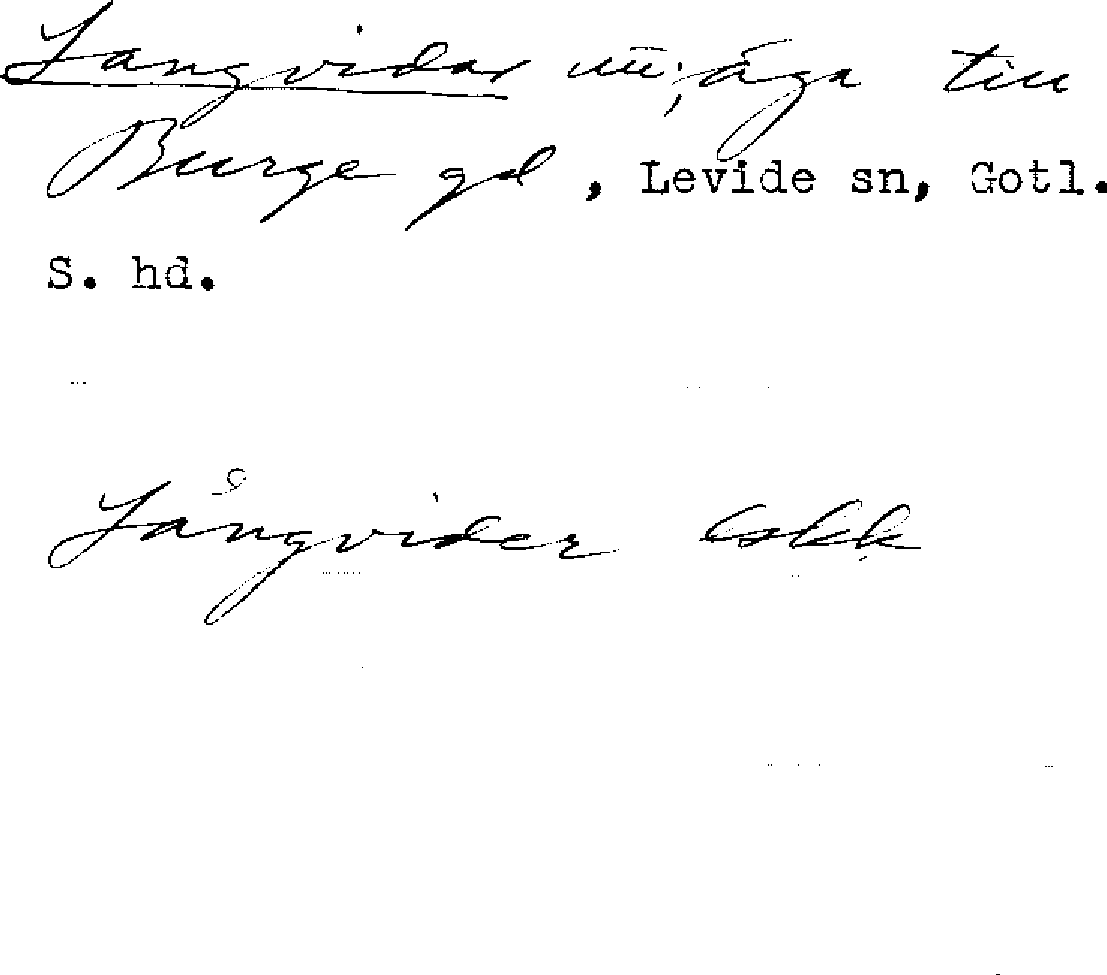 Langvidar äga till
Burge gd, Levide sn, Gotl.
S. hd.
Långvider